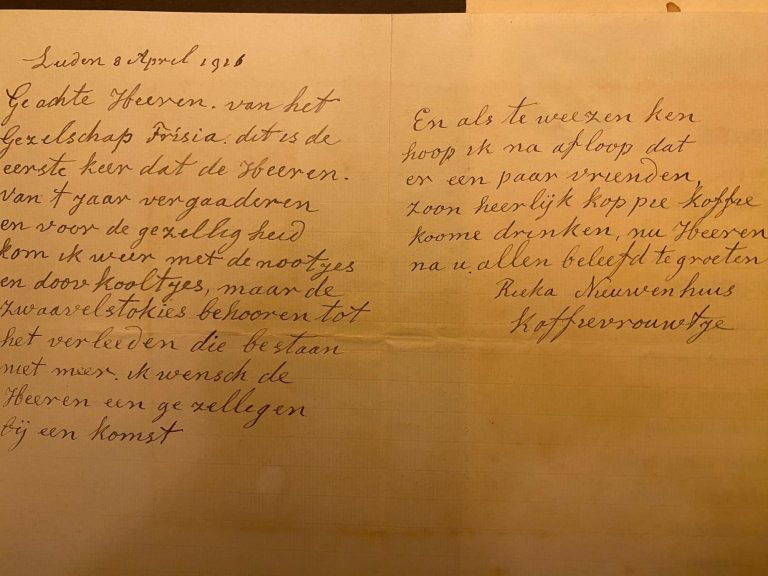 Luden 8 April 1916
Geachte Heeren. van het
Gezelschap Frisia. dit is de
eerste keer dat de Heeren.
van t jaar vergaaderen
en voor de gezelligheid
kom ik weer met de nootjes
en doovkooltjes, maar de
zwaavelstokies behooren tot
het verleeden die bestaan
niet meer. ik wensch de
Heeren een ge zellegen
bij een komst
En als te weezen ken
hoop ik na afloop dat
er een paar vrienden,
zoon heerlijk koppie koffie
koome drinken, nu Heeren
na u. allen beleefd te groeten
Rieka Nieuwenhuis
Koffievrouwtje